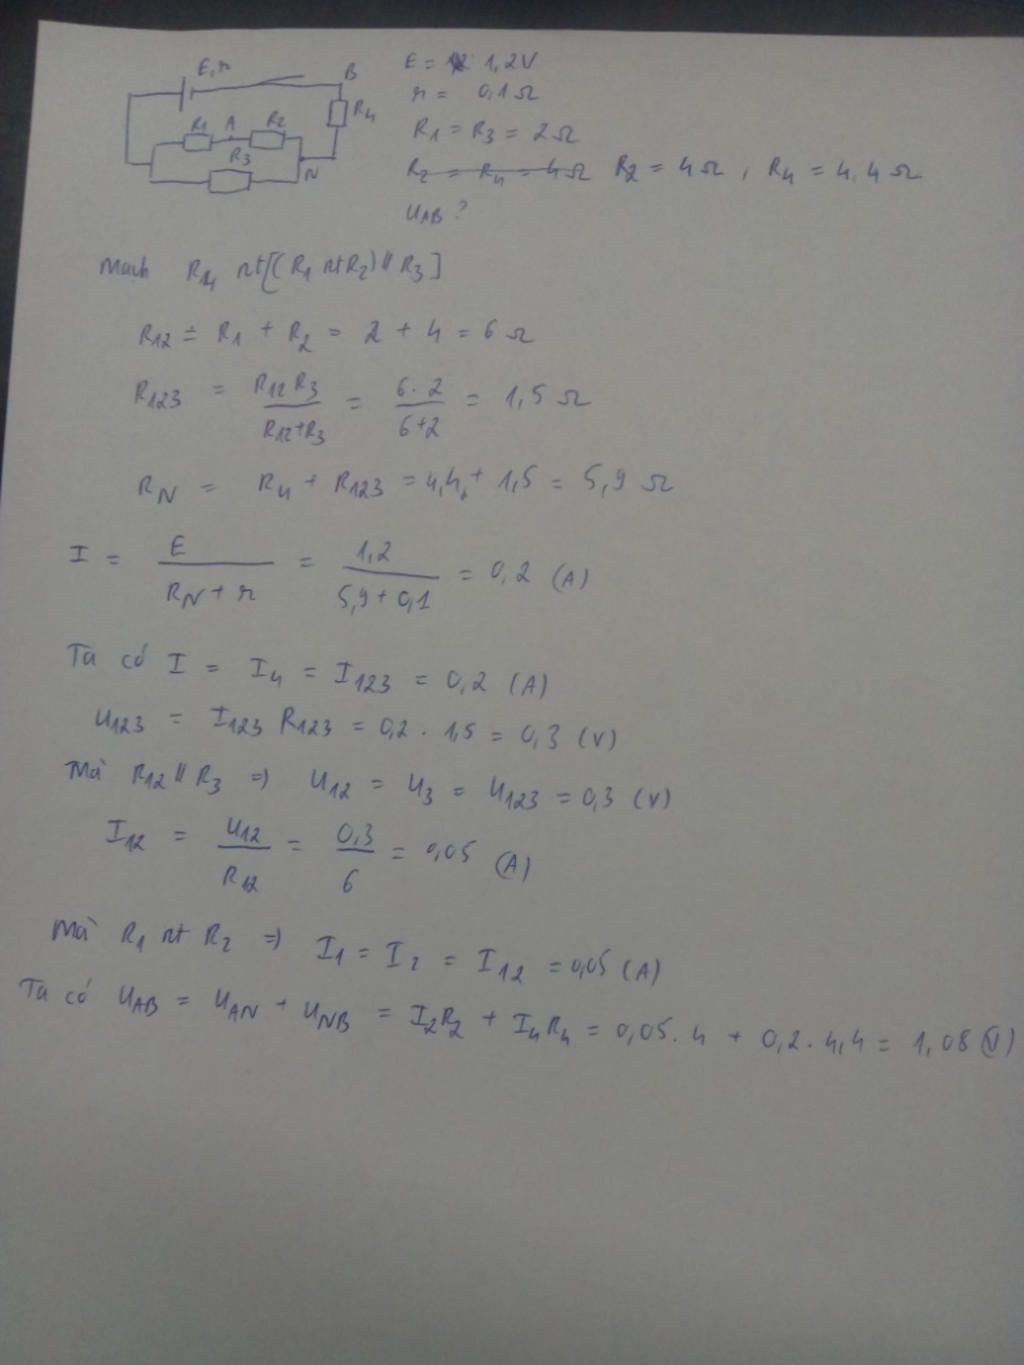 E, r
B
R4
R1 A R2
R3
N
E = 1,2V
r = 0,1Ω
R1 = R3 = 2Ω
R2 = R4 = 4Ω R2 = 4Ω, R4 = 4,4Ω
UAB ?
Mạch R4 nt[(R1 nt R2) // R3]
R12 = R1 + R2 = 2 + 4 = 6Ω
R123 = R12 R3 / R12+R3 = 6.2 / 6+2 = 1,5Ω
RN = R4 + R123 = 4,4 + 1,5 = 5,9Ω
I = E / RN + r = 1,2 / 5,9 + 0,1 = 0,2 (A)
Ta có I = I4 = I123 = 0,2 (A)
U123 = I123 R123 = 0,2 . 1,5 = 0,3 (V)
Mà R12 // R3 => U12 = U3 = U123 = 0,3 (V)
I12 = U12 / R12 = 0,3 / 6 = 0,05 (A)
Mà R1 nt R2 => I1 = I2 = I12 = 0,05 (A)
Ta có UAB = UAN + UNB = I2R2 + I4R4 = 0,05.4 + 0,2.4,4 = 1,08 (V)